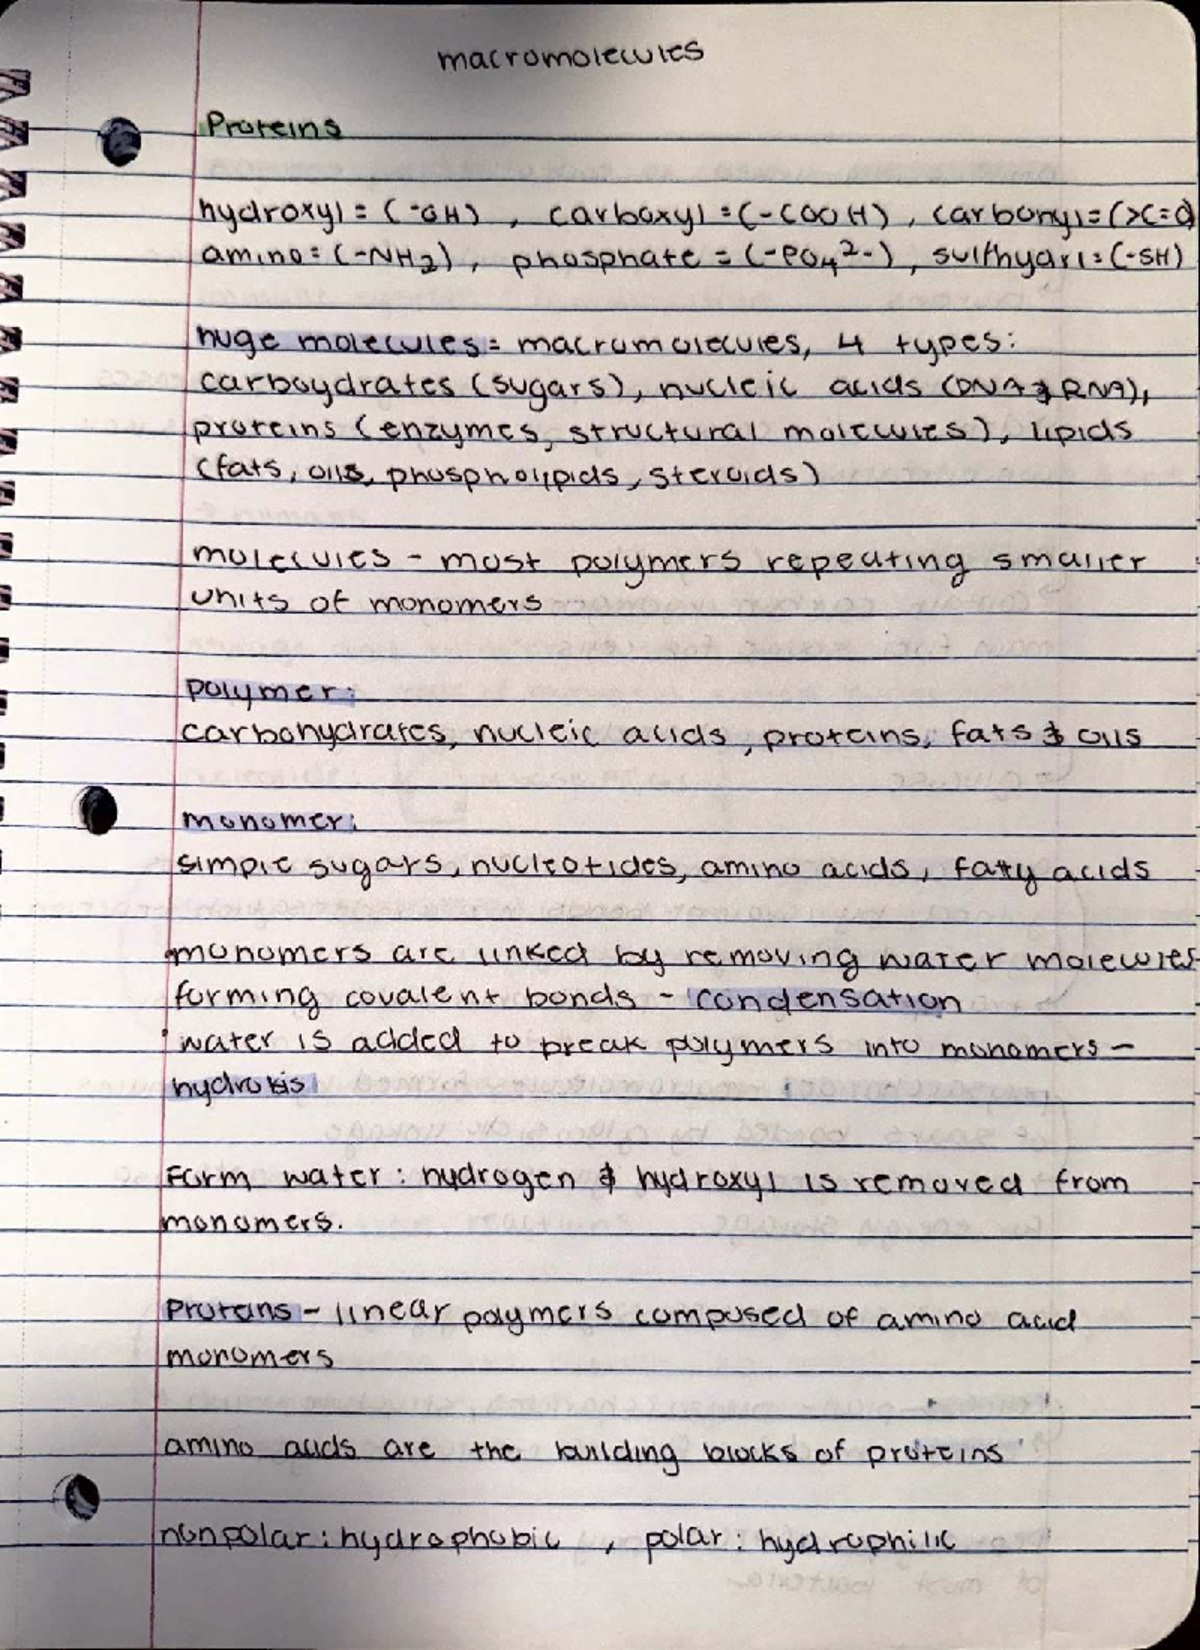 macromolecules
Proteins
hydroxyl = (-OH) , carboxyl = (-COOH) , carbonyl = (>C=O)
amino = (-NH2) , phosphate = (-PO4 2-) , sulfhyarl = (-SH)
huge molecules = macromolecules, 4 types:
carboydrates (sugars), nucleic acids (DNA & RNA),
proteins (enzymes, structural molecules), lipids
(fats, oils, phospholipids, steroids)
molecules - most polymers repeating smaller
units of monomers
polymer:
carbohydrates, nucleic acids , proteins, fats & oils
monomer:
simple sugars, nucleotides, amino acids, fatty acids
monomers are linked by removing water molecules
forming covalent bonds - condensation
water is added to break polymers into monomers -
Form water : hydrogen & hydroxyl is removed from
monomers.
Proteins - linear polymers composed of amino acid
monomers
amino acids are the building blocks of proteins
nonpolar : hydrophobic , polar : hydrophilic